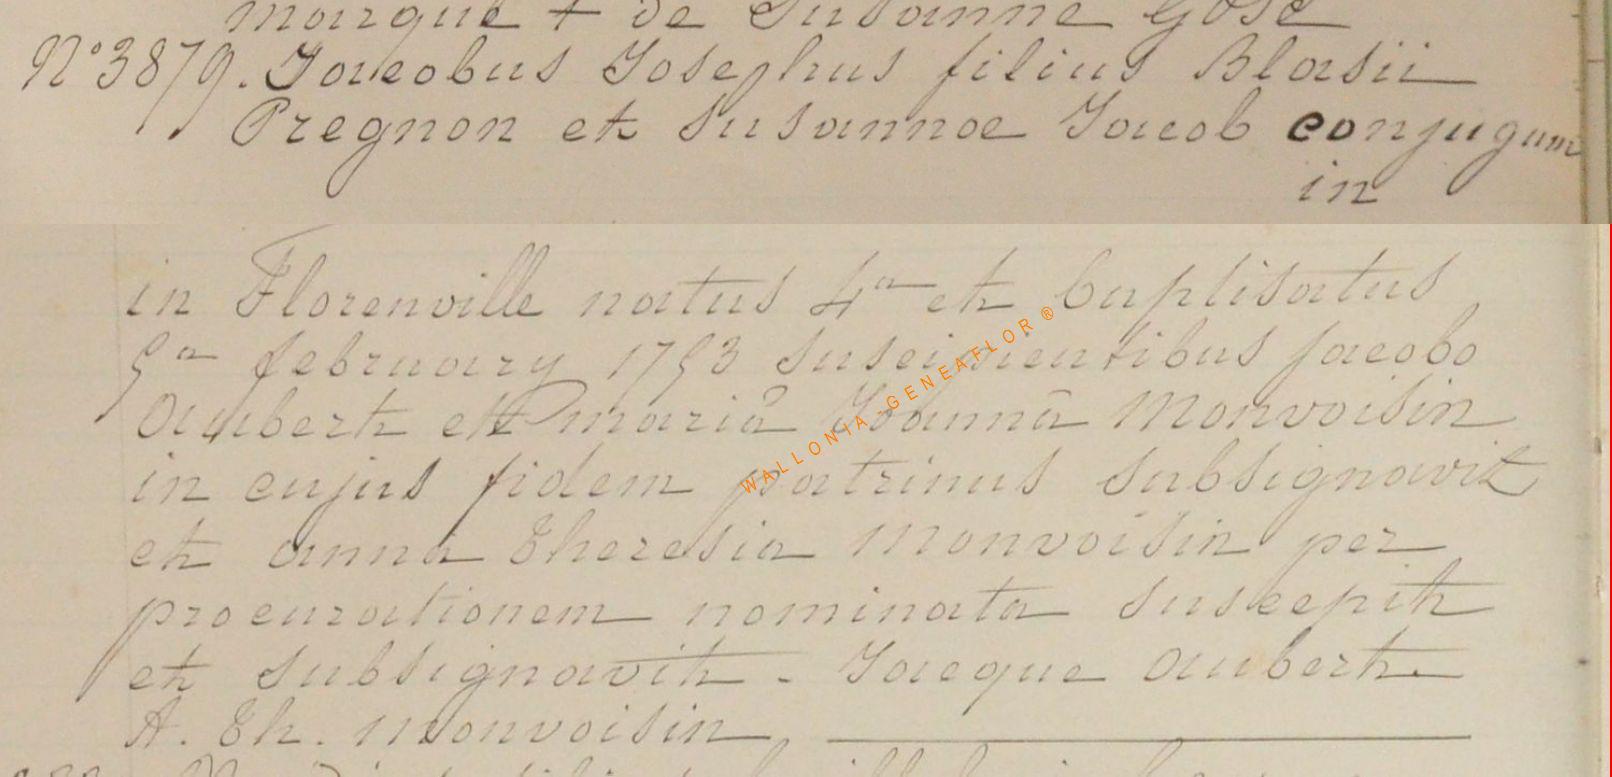 marque + de Susanne Gose
N°3879. Jacobus Josephus filius Blasii
Pregnon et Susannae Jacob conjugum
in
in Florenville natus 4a et baptisatus
5a february 1753 suscipientibus jacobo
Aubert et mariâ Joannâ Monvoisin
in cujus fidem patrinus subsignavit
et anna Theresia Monvoisin per
procurationem nominata suscepit
et subsignavit - Jacque Aubert.
A. Th. Monvoisin
WALLONIA-GENEAFLOR®